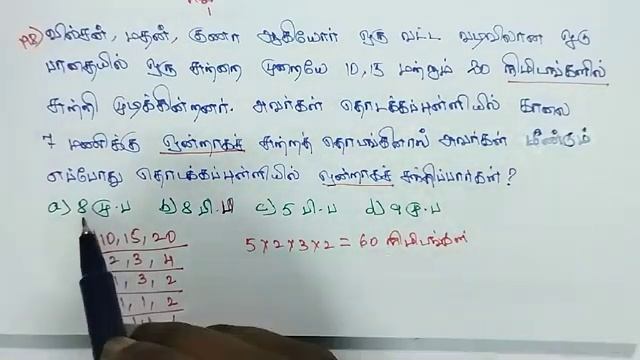 வில்சன், மதன், குணா ஆகியோர் ஒரு வட்ட வடிவிலான ஒடு
பாதையில் ஒரு சுற்றை முறையே 10, 15 மற்றும் 20 நிமிடங்களில்
சுற்றி முடிக்கின்றனர். அவர்கள் தொடக்கப்புள்ளியில் காலை
7 மணிக்கு ஒன்றாகச் சுற்றத் தொடங்கினால் அவர்கள் மீண்டும்
எப்போது தொடக்கப்புள்ளியில் ஒன்றாகச் சந்திப்பார்கள்?
a) 8 மு.ப b) 8 பி.ப c) 5 பி.ப d) 9 மு.ப
10, 15, 20 5 × 2 × 3 × 2 = 60 நிமிடங்கள்
2, 3, 4
1, 3, 2
1, 1, 2